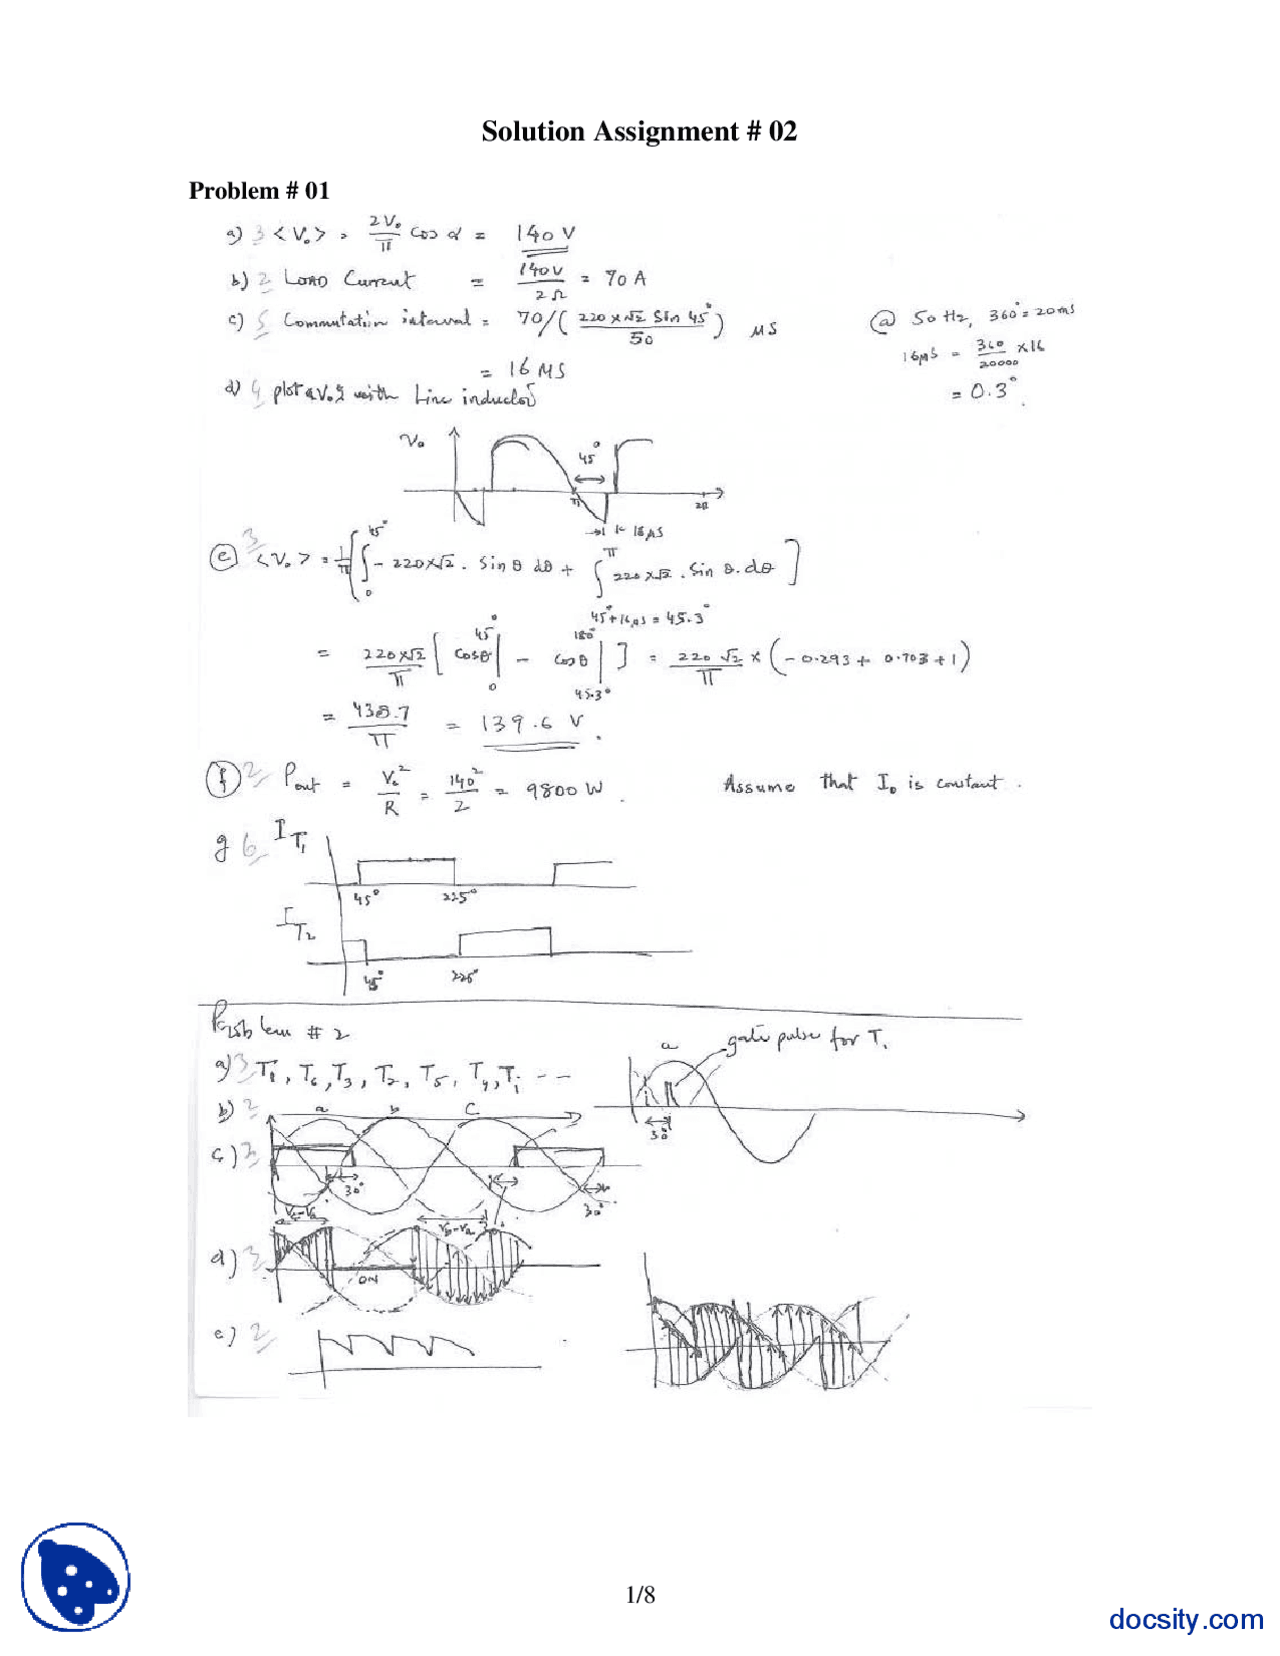 Solution Assignment # 02
Problem # 01
a) 3 <V₀> = 2V₀/π cos α = 140 V
b) 2 LOAD Current = 140V/2Ω = 70 A
c) 5 Commutation interval = 70/(220×√2 Sin 45°/50) μS
= 16 μS
@ 50 Hz, 360° = 20ms
16μS = 360/20000 ×16
= 0.3°
d) 4 plot V₀ with Line inductor
V₀
45°
π
2π
16μS
e) 3 <V₀> = 1/π [∫₀^45° - 220×√2 . Sin θ dθ + ∫^π 220×√2 . Sin θ . dθ]
45°+16μs = 45.3°
= 220×√2/π [cosθ|₀^45° - cosθ|45.3°^180°] = 220√2/π × (-0.293 + 0.703 + 1)
= 438.7/π = 139.6 V.
f) 2 Pout = V₀²/R = 140²/2 = 9800 W.
Assume that I₀ is constant.
g 6 IT₁
45° 225°
IT₂
45° 225°
Problem # 2
a) 3 T₁, T₆, T₃, T₂, T₅, T₄, T₁ - -
a
gate pulse for T₁
30°
b) 2
a b C
c) 3
30°
30°
Vb-Va
d) 3
ON
e) 2
1/8
docsity.com